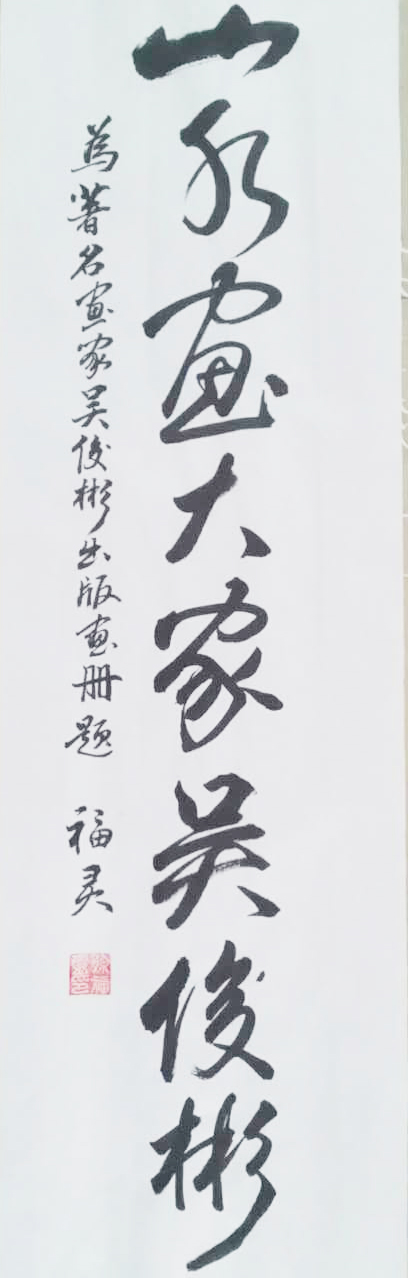 山水画大家吴俊彬
為著名画家吴俊彬出版画册题 福灵